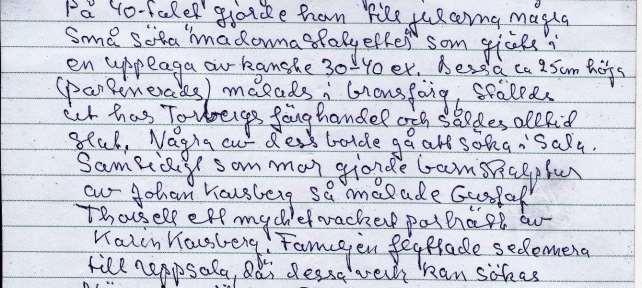 På 40-talet gjorde han till jularna några
små söta madonnastatyetter som gjöts i
en upplaga av kanske 30-40 ex. Dessa ca 25cm höga
(patinerads) målads i bronsfärg, ställds
ut hos Torbergs färghandel och såldes alltid
slut. Några av dess borde gå att söka i Sala.
Samtidigt som mor gjorde barnskulptur
av Johan Kausberg så målade Gustaf
Thorsell ett mycket vackert porträtt av
Karin Kausberg. Familjen flyttade sedemera
till Uppsala, där dessa verk kan sökas